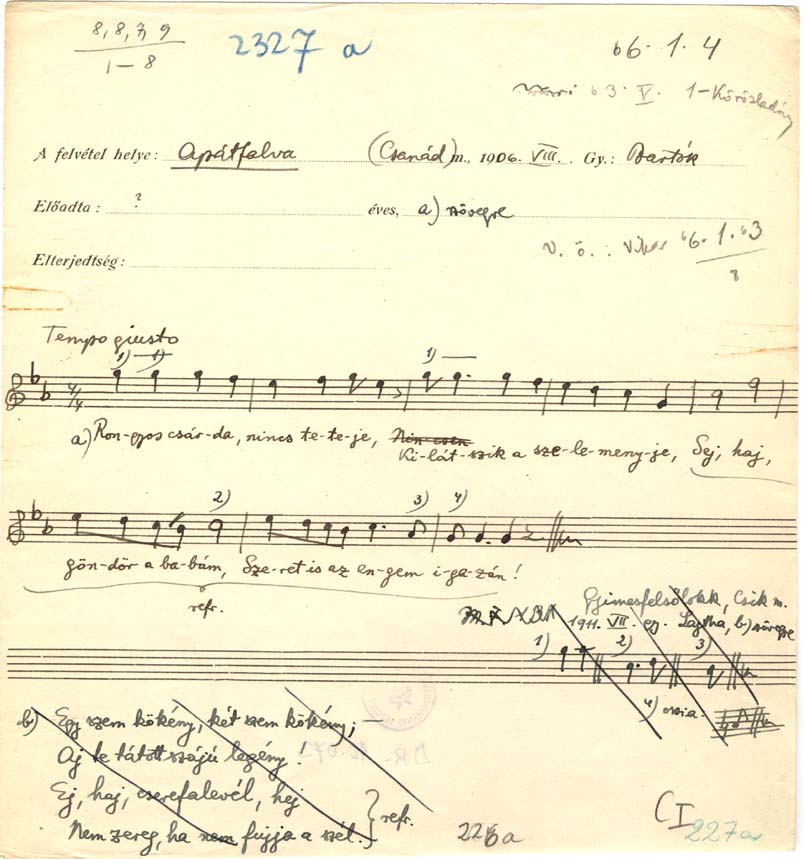 8, 8, 7, 9
1-8
2327 a
66. 1. 4
63. V. 1-Körösladány
A felvétel helye: Apátfalva (Csanád) m., 1906. VIII. Gy.: Bartók
Előadta: ? éves, a) szövegre
V. ö.: Vikár 66. 1. 63
8
Elterjedtség:
Tempo giusto
1) 1) 1)
4/4
a) Ron-gyos csár-da, nincs te-te-je, Nin-csen
Ki-lát-szik a sze-le-meny-je, Sej, haj,
2) 3) 4)
gön-dör a ba-bám, Sze-ret is az en-gem i-ga-zán!
refr.
Gyimesfelsőlokk, Csik m.
1911. VII. gy. Lajtha, b) szövegre
1) 2) 3)
4) ossia:
b) Egy szem kökény, két szem kökény; —
Aj te tátott szájú legény!
Ej, haj, cserefalevél, hej
Nem zereg, ha nem fujja a szél.
refr.
CI
227a